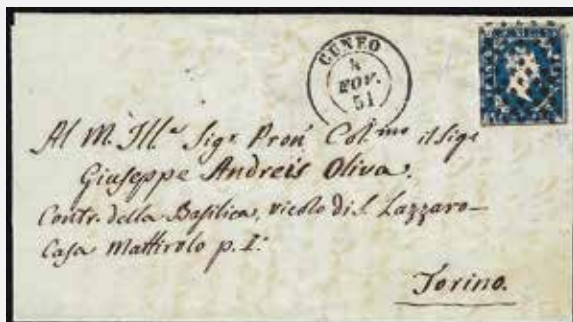 CUNEO
4
NOV.
51
Al M. Ill.e Sigr Pron Col.mo il Sigr
Giuseppe Andreis Oliva.
Contr. della Basilica, vicolo di S. Lazzaro
Casa Mattirolo p. I.
Torino.